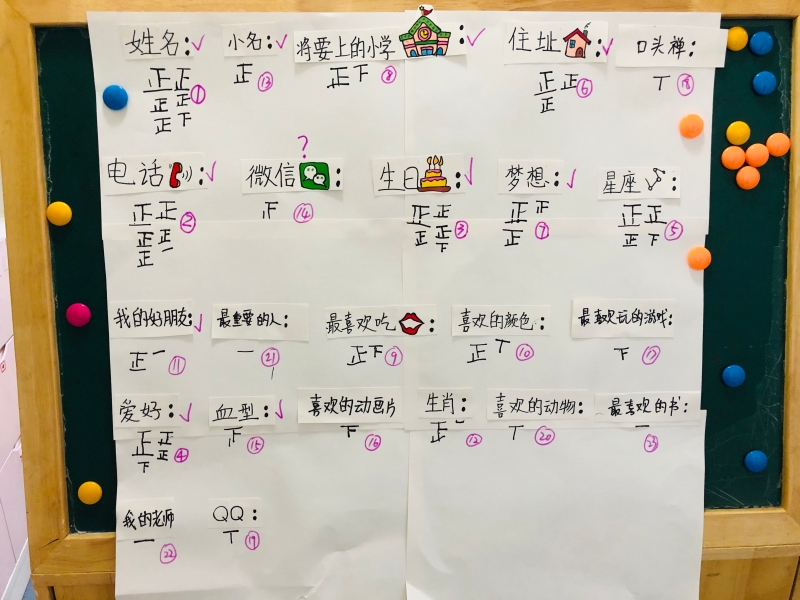 姓名: ✓ 小名: ✓ 将要上的小学 : ✓ 住址 : ✓ 口头禅:
正正正正正下 ① 正 ⑬ 正下 ⑧ 正正正 ⑥ 丅 ⑱
?
电话 : ✓ 微信 : 生日 : ✓ 梦想: ✓ 星座 :
正正正正正一 ② 正 ⑭ 正正正正下 ③ 正正正 ⑦ 正正正下 ⑤
我的好朋友: ✓ 最重要的人: 最喜欢吃 : 喜欢的颜色: 最喜欢玩的游戏:
正一 ⑪ 一 ㉑ 正下 ⑨ 正丅 ⑩ 下 ⑰
爱好: ✓ 血型: ✓ 喜欢的动画片 生肖: 喜欢的动物: 最喜欢的书:
正正正正下 ④ 正 ⑮ 下 ⑯ 正一 ⑫ 丅 ⑳ 一 ㉓
我的老师 QQ:
一 ㉒ 丅 ⑲